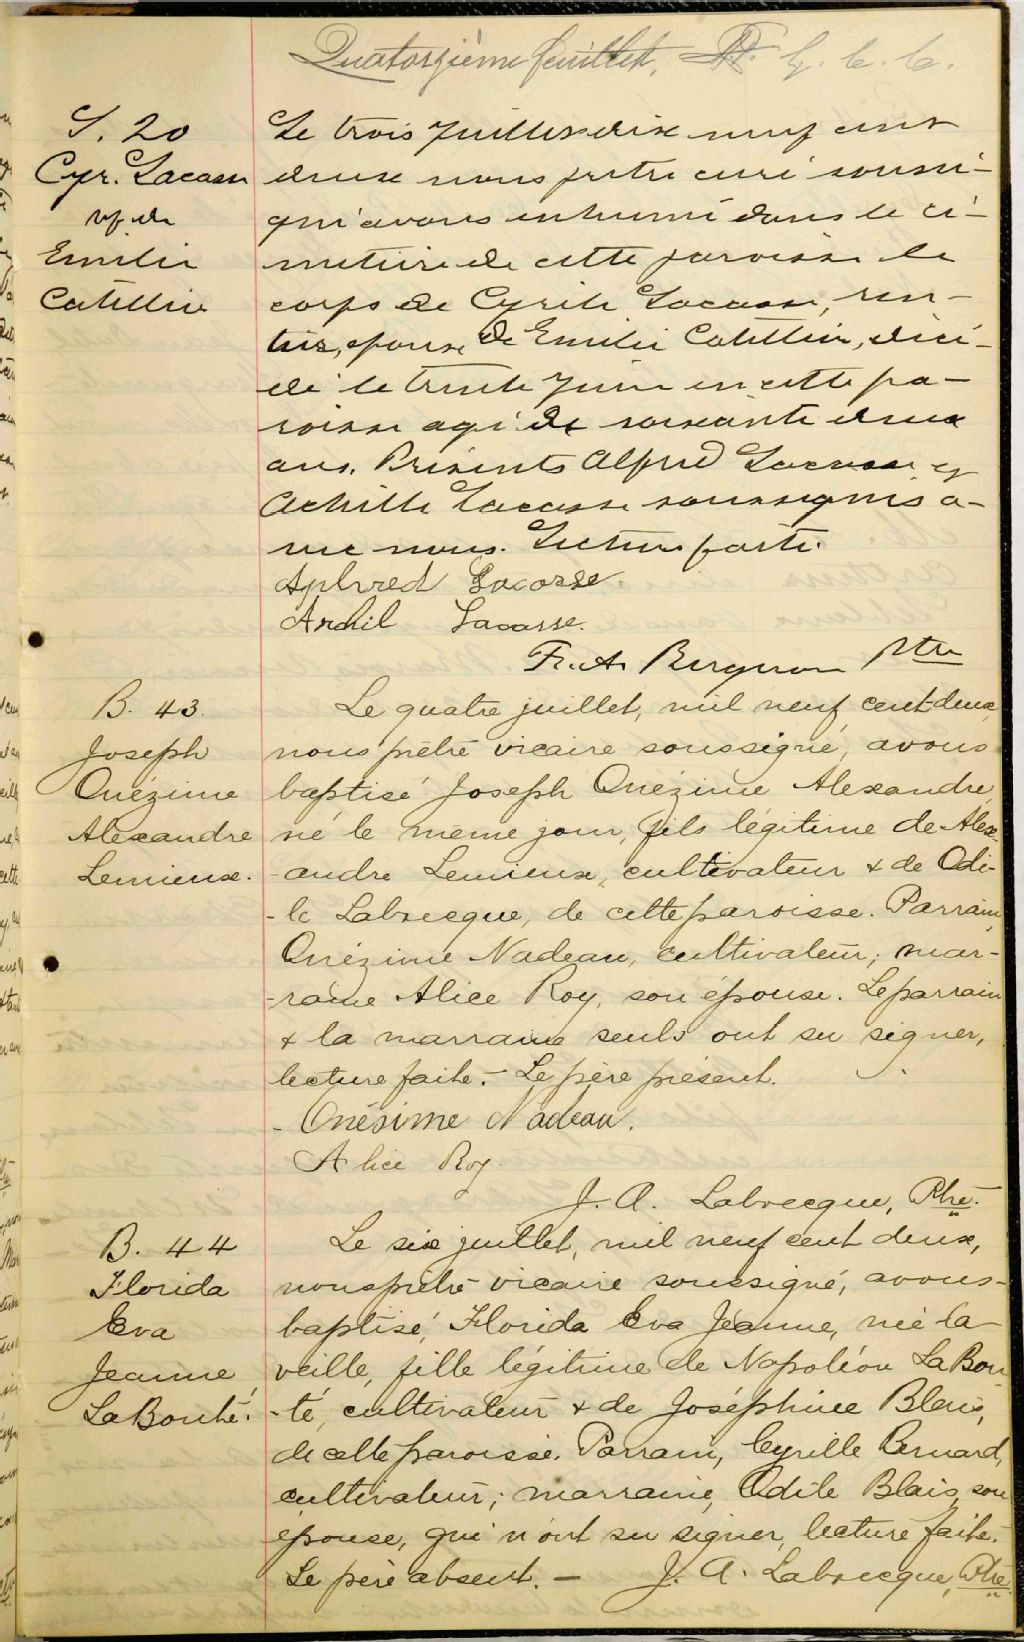 Quatorzième feuillet.
S. 20
Cyr. Lacasse
ep. de
Emilie
Catellier
Le trois Juillet dix neuf cent
deux nous prêtre curé soussi-
gné avons inhumé dans le ci-
metière de cette paroisse le
corps de Cyrile Lacasse, ren-
tier, époux de Emilie Catellier, décé-
dé le trente Juin en cette pa-
roisse agé de soixante deux
ans. Présents Alfred Lacasse et
Achille Lacasse soussignés a-
vec nous. Lecture faite.
Aphred Lacasse.
Archil Lacasse.
Fr. A. Bergeron Ptre
B. 43.
Joseph
Onézime
Alexandre
Lemieux.
Le quatre juillet, mil neuf cent deux,
nous prêtre vicaire soussigné, avons
baptisé Joseph Onézime Alexandre,
né le même jour, fils légitime de Alex-
-andre Lemieux, cultivateur & de Odi-
-le Labrecque, de cette paroisse. Parrain,
Onézime Nadeau, cultivateur; mar-
-raine Alice Roy, son épouse. Le parrain
& la marraine seuls ont su signer,
lecture faite. - Le père présent.
- Onésime Nadeau.
Alice Roy.
J. A. Labrecque, Ptre.
B. 44
Florida
Eva
Jeanne
LaBonté.
Le six juillet, mil neuf cent deux,
nous prêtre vicaire soussigné, avons
baptisé, Florida Eva Jeanne, née la
veille, fille légitime de Napoléon LaBon-
-té, cultivateur & de Joséphine Blais,
de cette paroisse. Parrain, Cyrille Bernard,
cultivateur; marraine, Odile Blais, son
épouse, qui n'ont su signer, lecture faite.
Le père absent. - J. A. Labrecque, Ptre